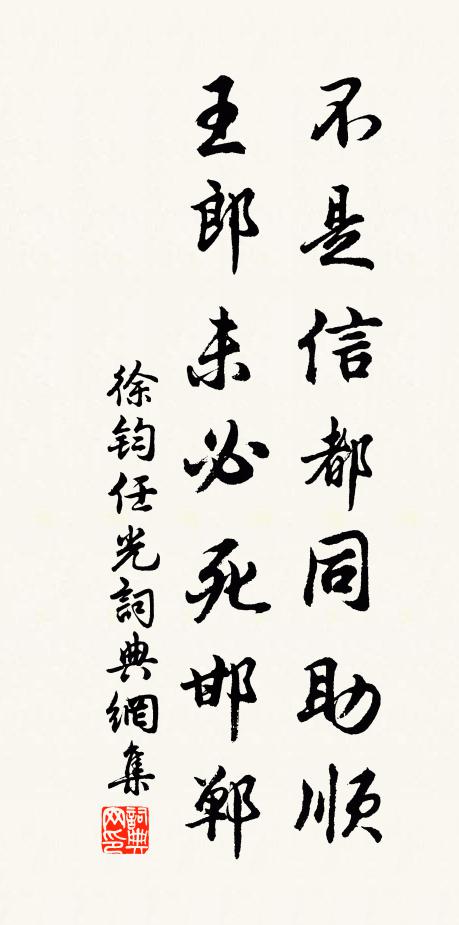 不是信都同助顺
王郎未必死邯郸
徐钧任光詞典網集
詞典网印